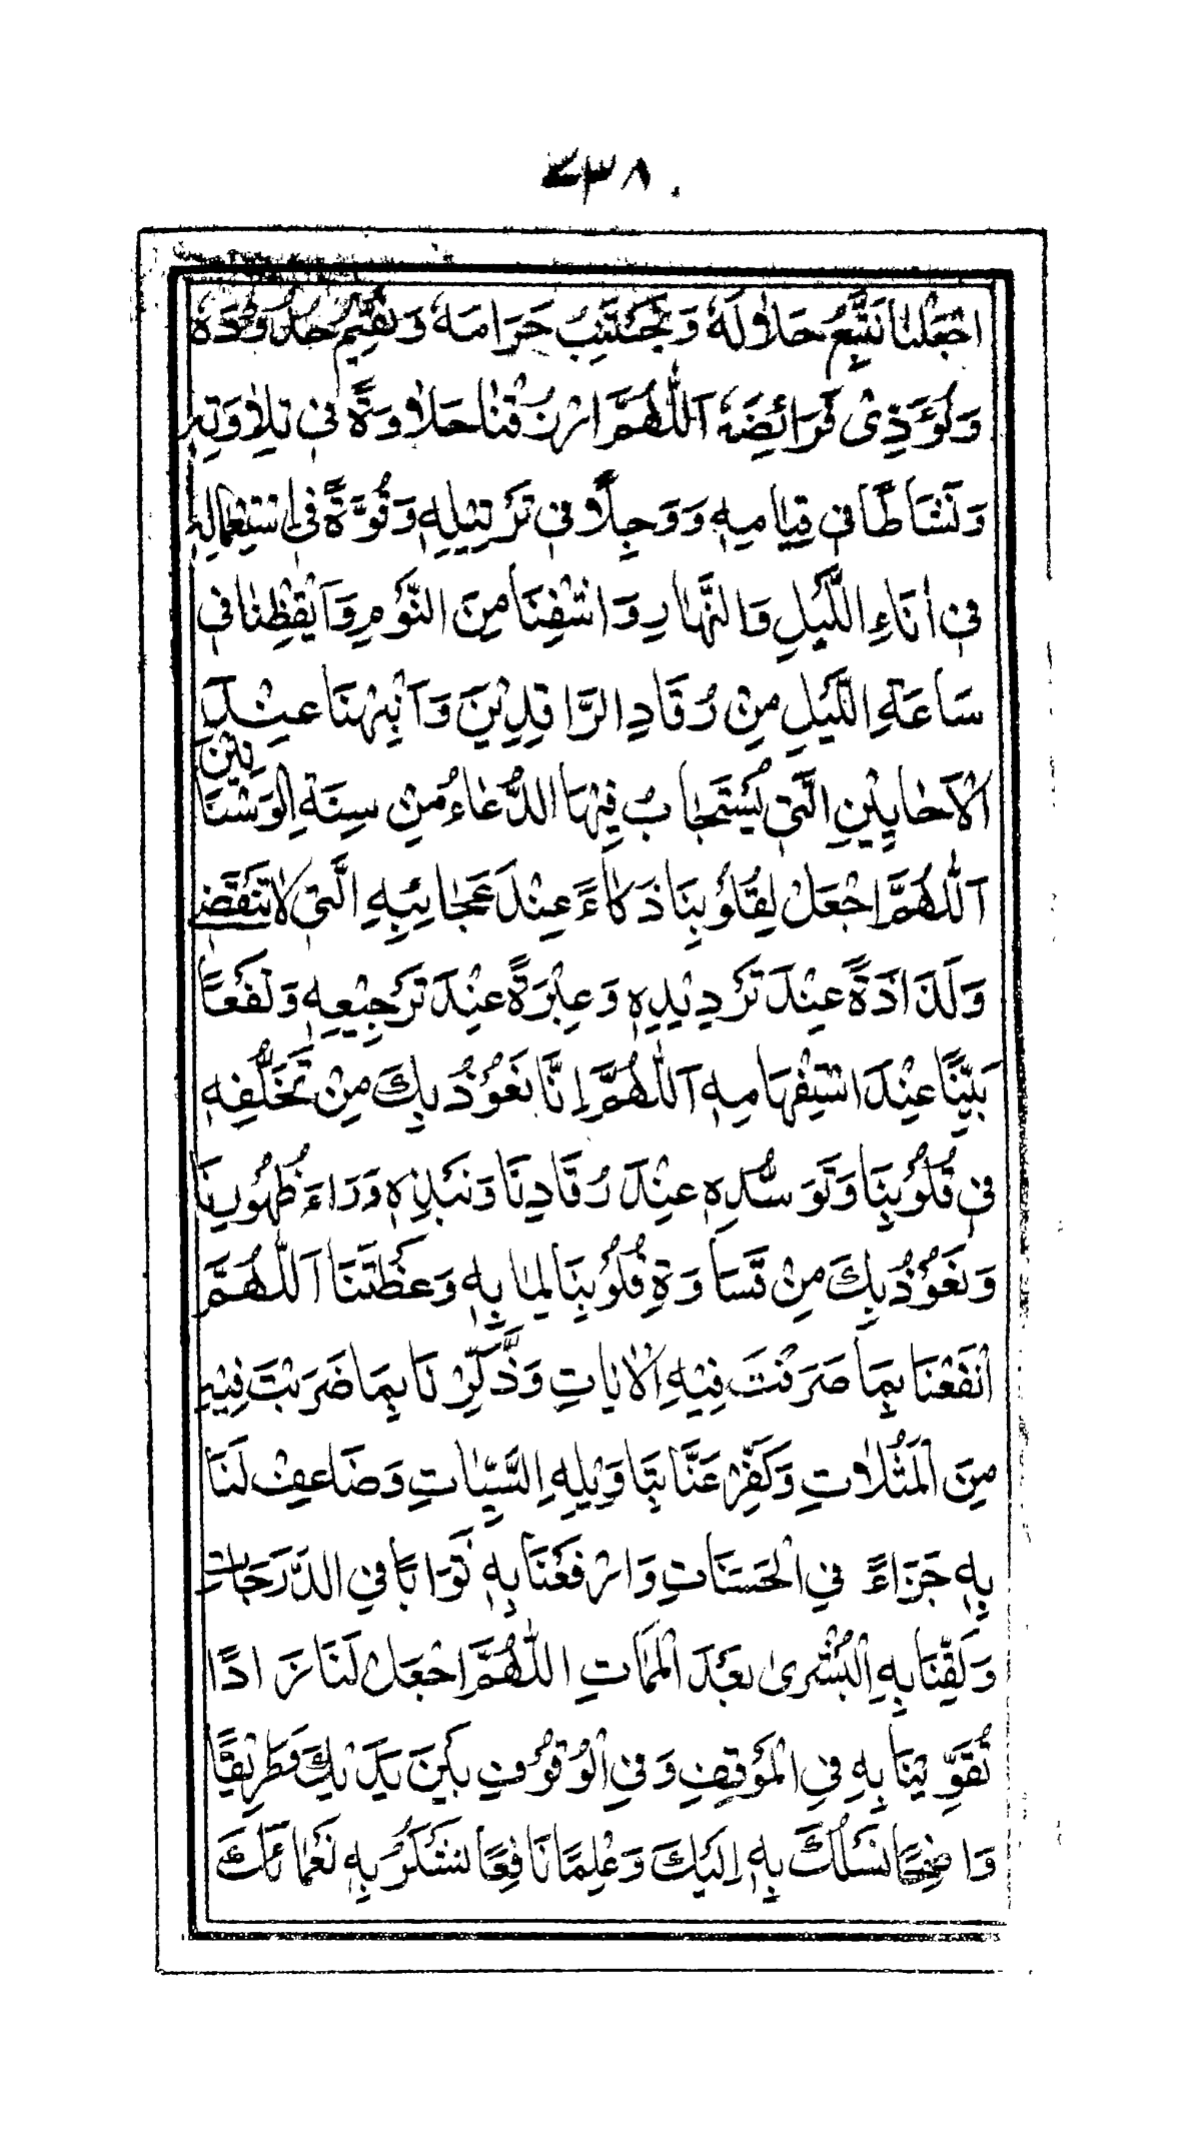 ۲۳۸
اجْعَلْنٰا نَتَّبِعُ حَلاٰلَهُ وَنَجْتَنِبُ حَرَامَهُ وَنُقِيْمُ حُدُوْدَهُ
وَنُؤَدِّىْ فَرَائِضَهُ اَللّٰهُمَّ ارْزُقْنٰا حَلاٰوَةً فِىْ تِلاٰوَتِهِ
وَنَشَاطًا فِىْ قِيٰامِهٖ وَوَجِلاً فِىْ تَرْتِيْلِهٖ وَقُوَّةً فِى اسْتِعْمٰالِهٖ
فِىْ اٰنَاءِ اللَّيْلِ وَالنَّهٰارِ وَاشْفِنَا مِنَ النَّوْمِ وَاَيْقِظْنٰا فِىْ
سَاعَةِ اللَّيْلِ مِنْ رُقَادِ الرَّاقِدِيْنَ وَاَنْبِهْنَا عِنْدَ
الْاَحٰايِيْنِ الَّتِىْ يُسْتَجٰابُ فِيْهَا الدُّعٰاءُ مِنْ سِنَةِ الْوَسْنَانِيْنَ
اَللّٰهُمَّ اجْعَلْ لِقُلُوْبِنَا ذَكٰاءً عِنْدَ عَجٰائِبِهِ الَّتِىْ لاٰ تَنْقَضِىْ
وَلَذَاذَةً عِنْدَ تَرْدِيْدِهٖ وَعِبْرَةً عِنْدَ تَرْجِيْعِهٖ وَنَفْعًا
بَيِّنًا عِنْدَ اسْتِفْهَامِهٖ اَللّٰهُمَّ اِنَّا نَعُوْذُ بِكَ مِنْ تَخَلُّفِهٖ
فِىْ قُلُوْبِنَا وَتَوَسُّدِهٖ عِنْدَ رُقَادِنَا وَنَبْذِهٖ وَرَاءَ ظُهُوْرِنَا
وَنَعُوْذُ بِكَ مِنْ قَسَاوَةِ قُلُوْبِنَا لِمٰا بِهٖ وَعَظْتَنَا اَللّٰهُمَّ
انْفَعْنَا بِمَا صَرَفْتَ فِيْهِ الْاٰيٰاتِ وَذَكِّرْنَا بِمَا ضَرَبْتَ فِيْهِ
مِنَ الْمَثُلاٰتِ وَكَفِّرْ عَنَّا بِتَاوِيْلِهِ السَّيِّئٰاتِ وَضَاعِفْ لَنَا
بِهٖ جَزَاءً فِي الْحَسَنَاتِ وَارْفَعْنَا بِهٖ ثَوَابًا فِي الدَّرَجَاتِ
وَلَقِّنَا بِهِ الْبُشْرىٰ بَعْدَ الْمَمَاتِ اللّٰهُمَّ اجْعَلْ لَنَا زَادًا
تُقَوِّيْنَا بِهٖ فِي الْمَوْقِفِ وَفِي الْوُقُوْفِ بَيْنَ يَدَيْكَ وَطَرِيْقًا
وَاضِحًا نَسْلُكُ بِهٖ اِلَيْكَ وَعِلْمًا نَافِعًا نَشْكُرُ بِهٖ نَعْمَائَكَ